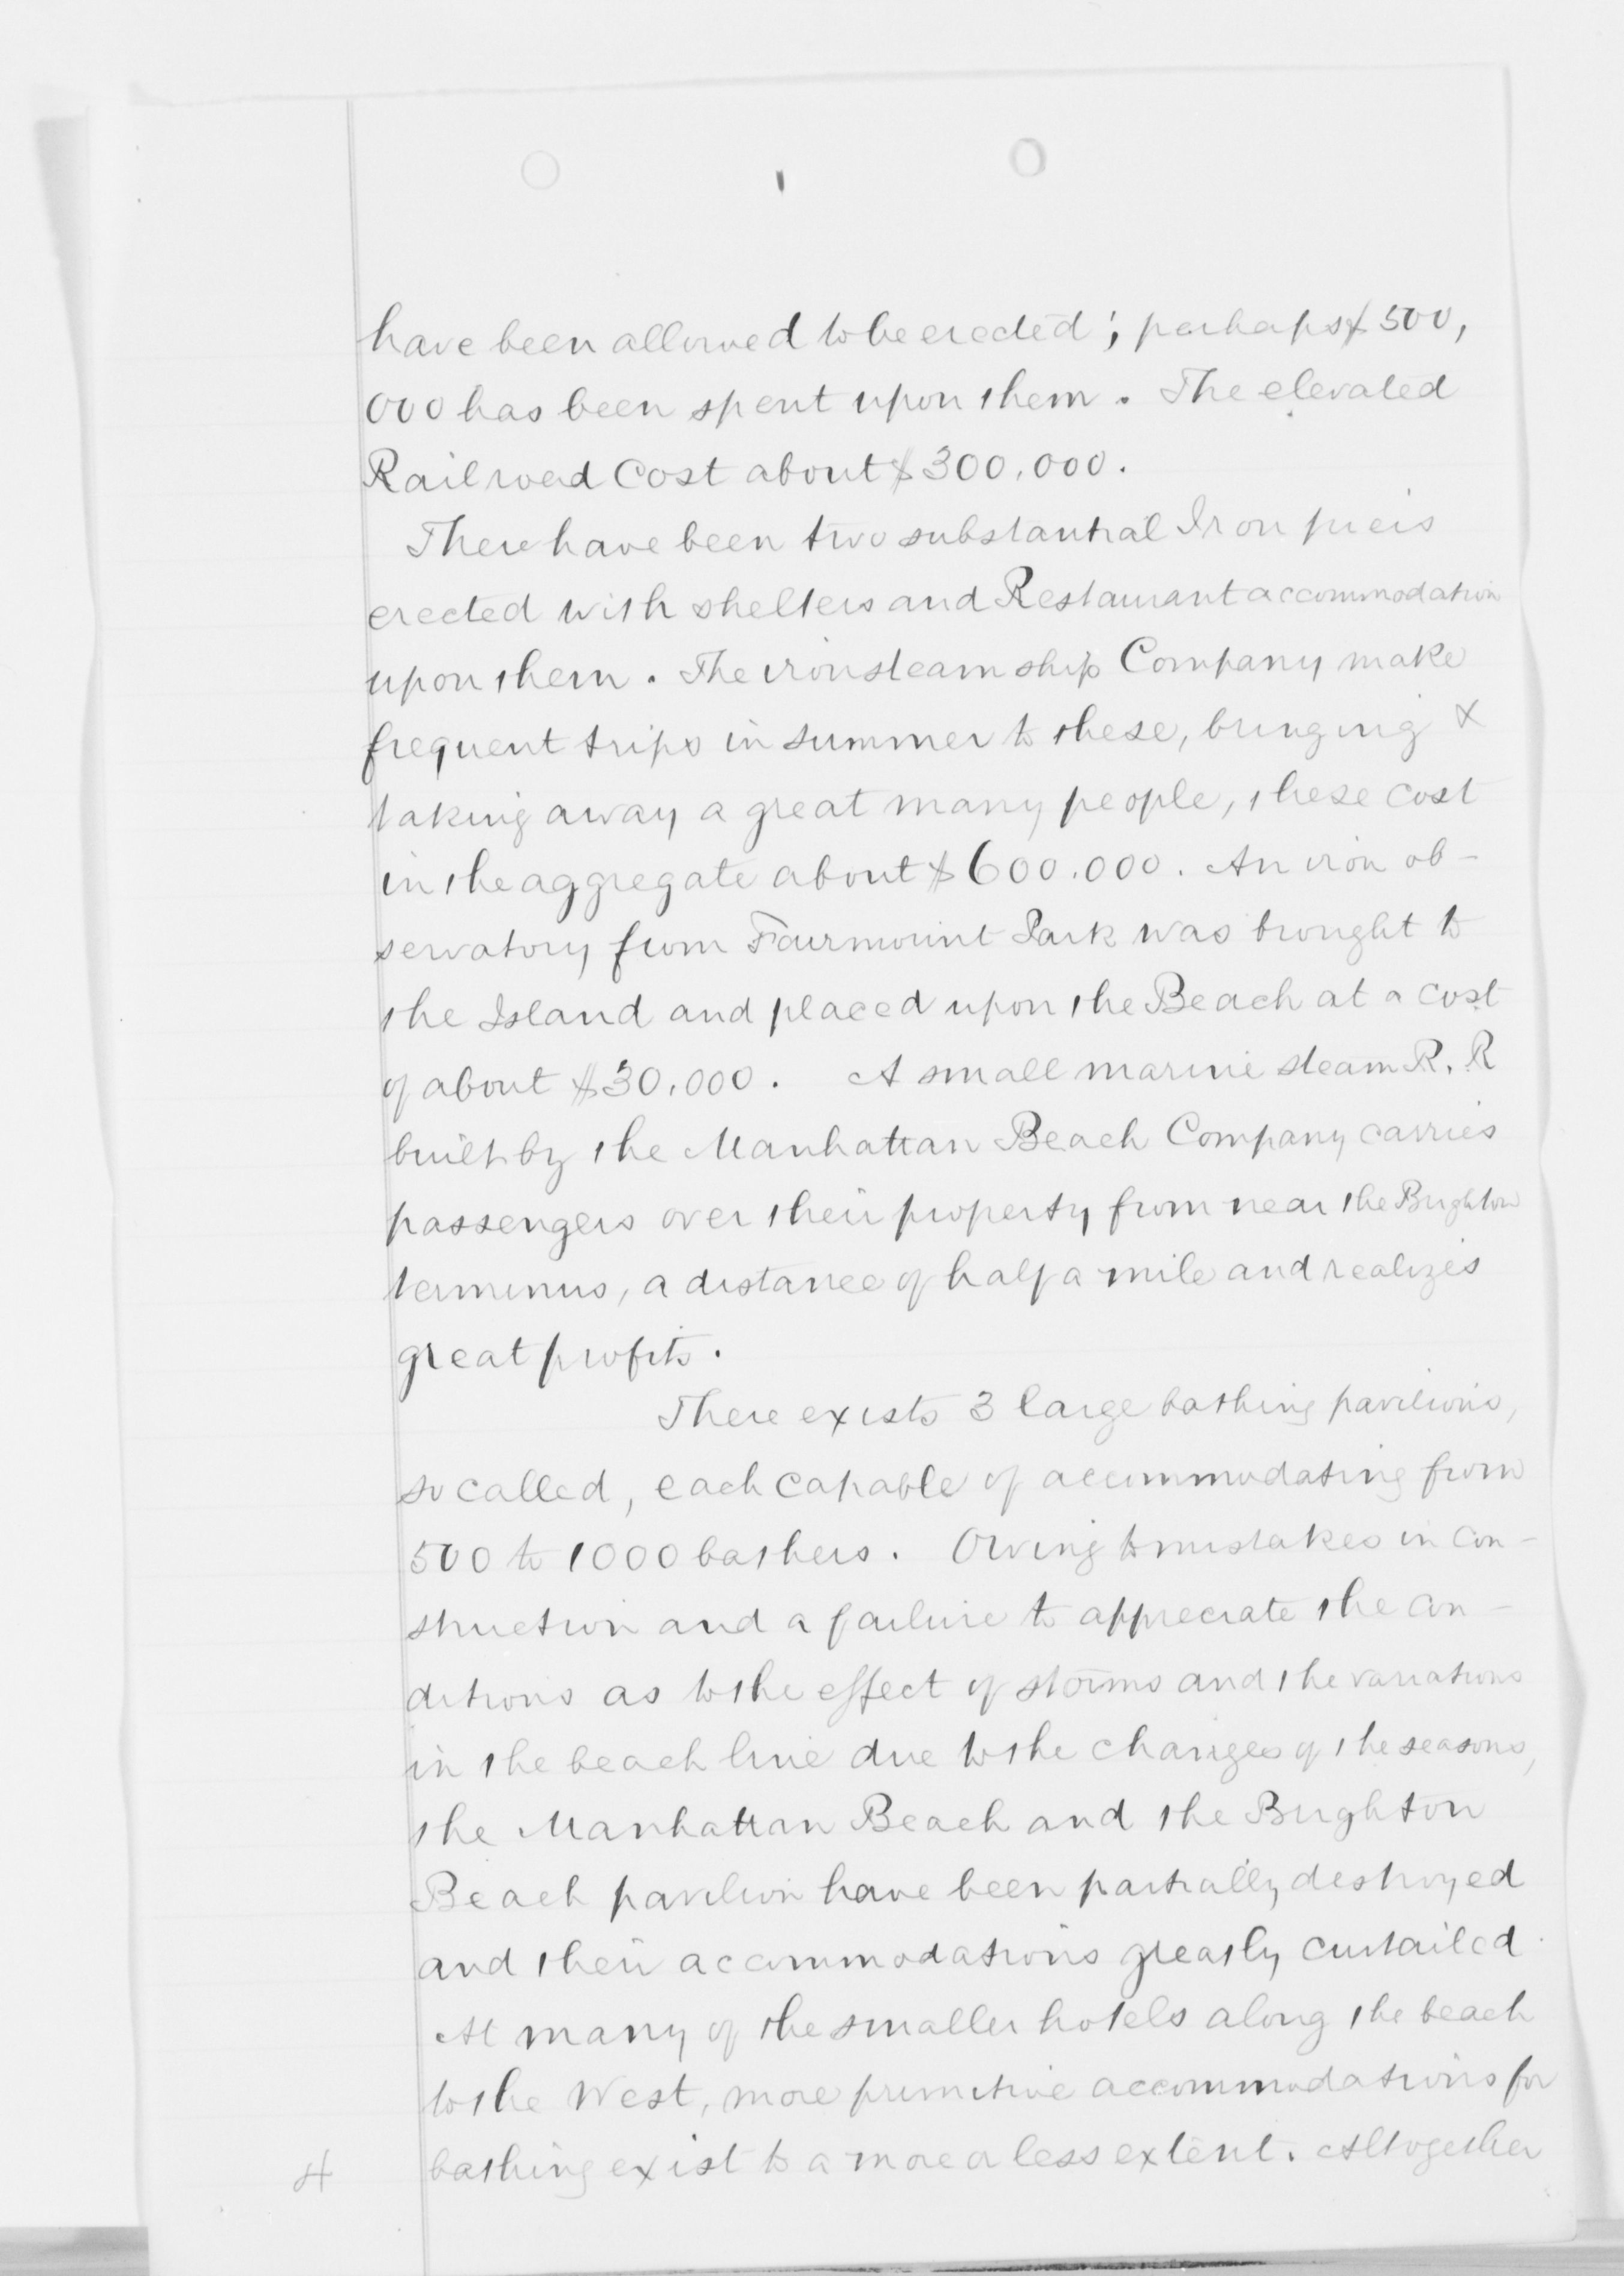 have been allowed to be erected; perhaps $500,
000 has been spent upon them. The elevated
Railroad Cost about $300,000.
There have been two substantial Iron piers
erected with shelters and Restaurant accommodation
upon them. The iron steam ship Company make
frequent trips in summer to these, bringing &
taking away a great many people, these cost
in the aggregate about $600.000. An iron ob-
servatory from Fairmount Park was brought to
the Island and placed upon the Beach at a cost
of about $30,000. A small marine steam R. R
built by the Manhattan Beach Company carries
passengers over their property from near the Brighton
terminus, a distance of half a mile and realizes
great profits.
There exists 3 large bathing pavilions,
so called, each capable of accommodating from
500 to 1000 bathers. Owing to mistakes in con-
struction and a failure to appreciate the con-
ditions as to the effect of storms and the variations
in the beach line due to the changes of the seasons,
the Manhattan Beach and the Brighton
Beach pavilion have been partially destroyed
and their accommodations greatly curtailed.
At many of the smaller hotels along the beach
to the West, more primitive accommodations for
bathing exist to a more or less extent. Altogether
4